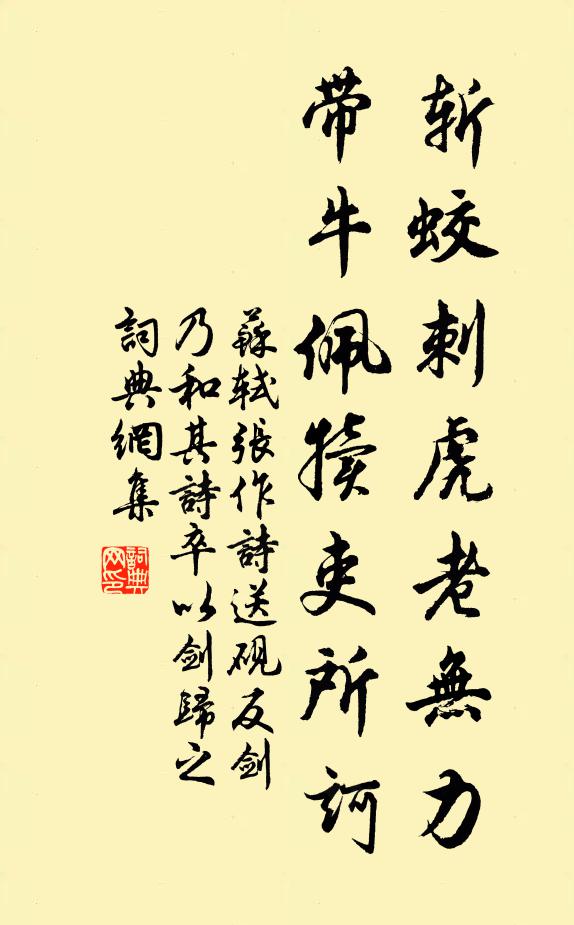 斬蛟刺虎老無力
帶牛佩犢吏所訶
蘇軾張作詩送硯反劍
乃和其詩卒以劍歸之
詞典網集
詞典
网印